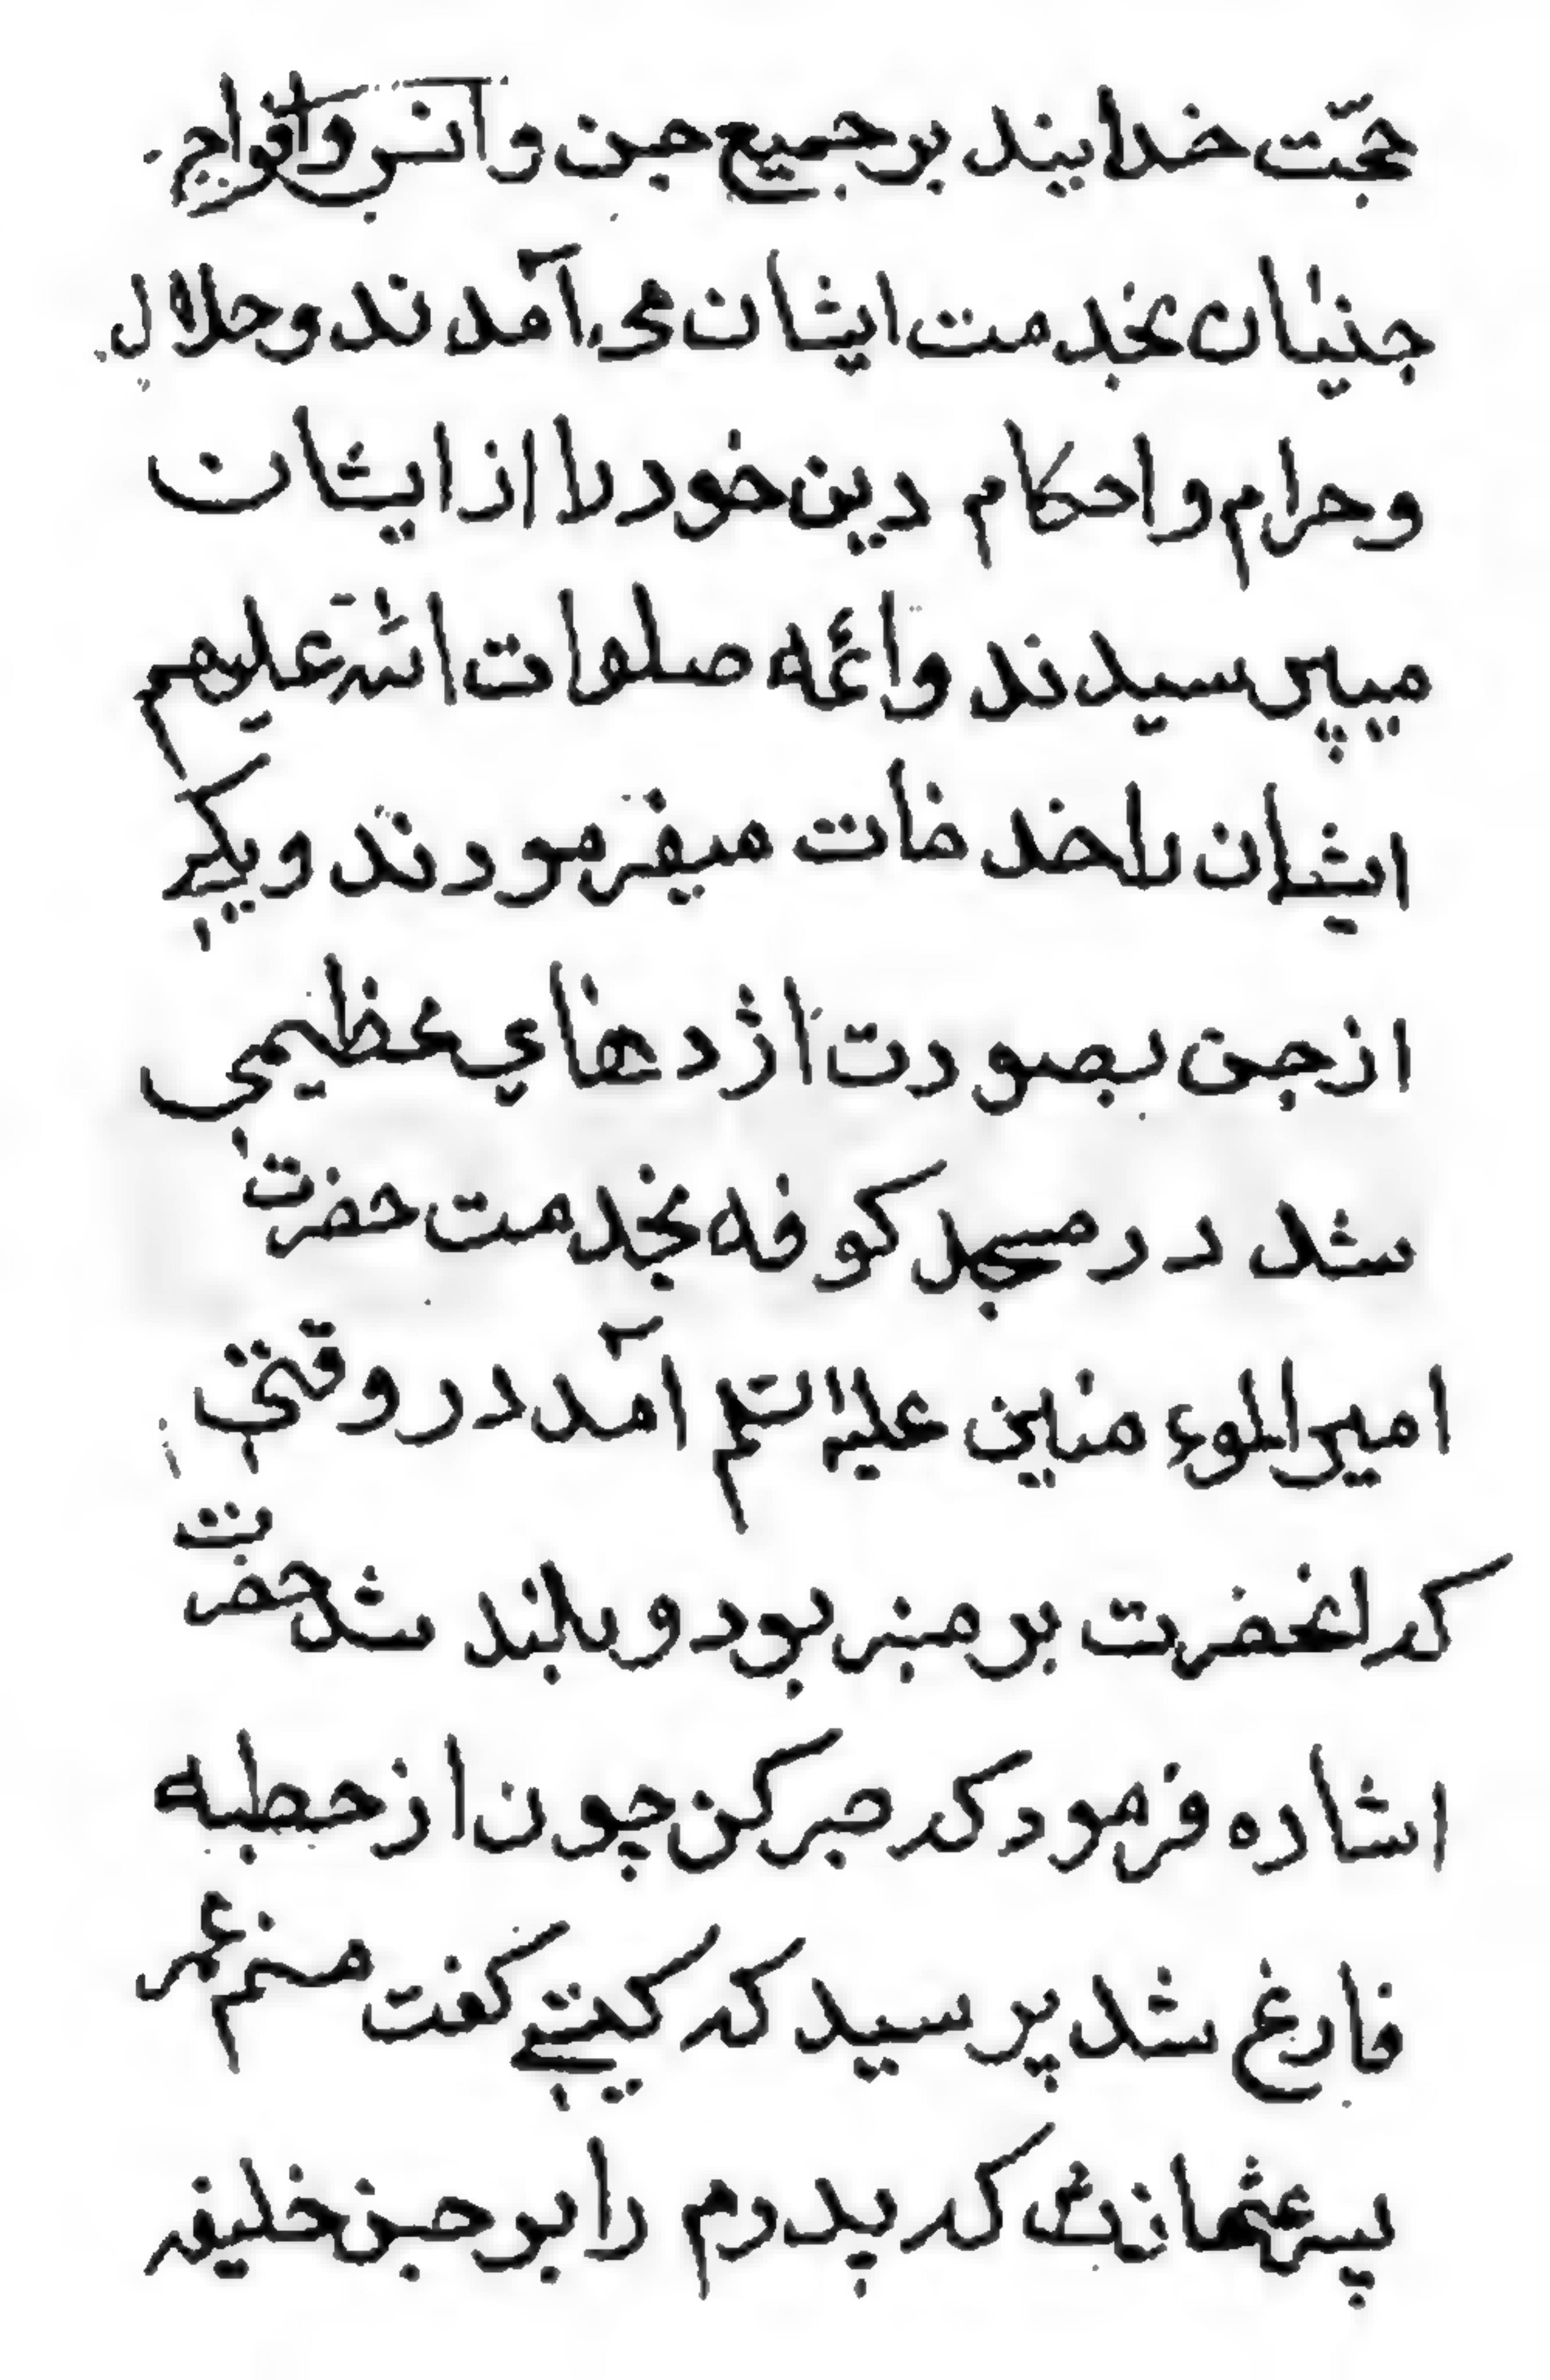 حجّت خدایند بر جمیع جن و انس و افواج
جنیان بخدمت ایشان می آمدند و حلال
و حرام و احکام دین خود را از ایشان
میپرسیدند و ائمه صلوات الله علیهم
ایشان را خدمات میفرمودند و یکی
از جن بصورت اژدهای عظیمی
شد در مسجد کوفه بخدمت حضرت
امیر الموءمنین علیه السلم آمد در وقتی
که انحضرت بر منبر بود و بلند شد حضرت
اشاره فرمود که صبر کن چون از خطبه
فارغ شد پرسید که کیستی کفت منم عمر
پسر عثمان که پدرم را بر جن خلیفه